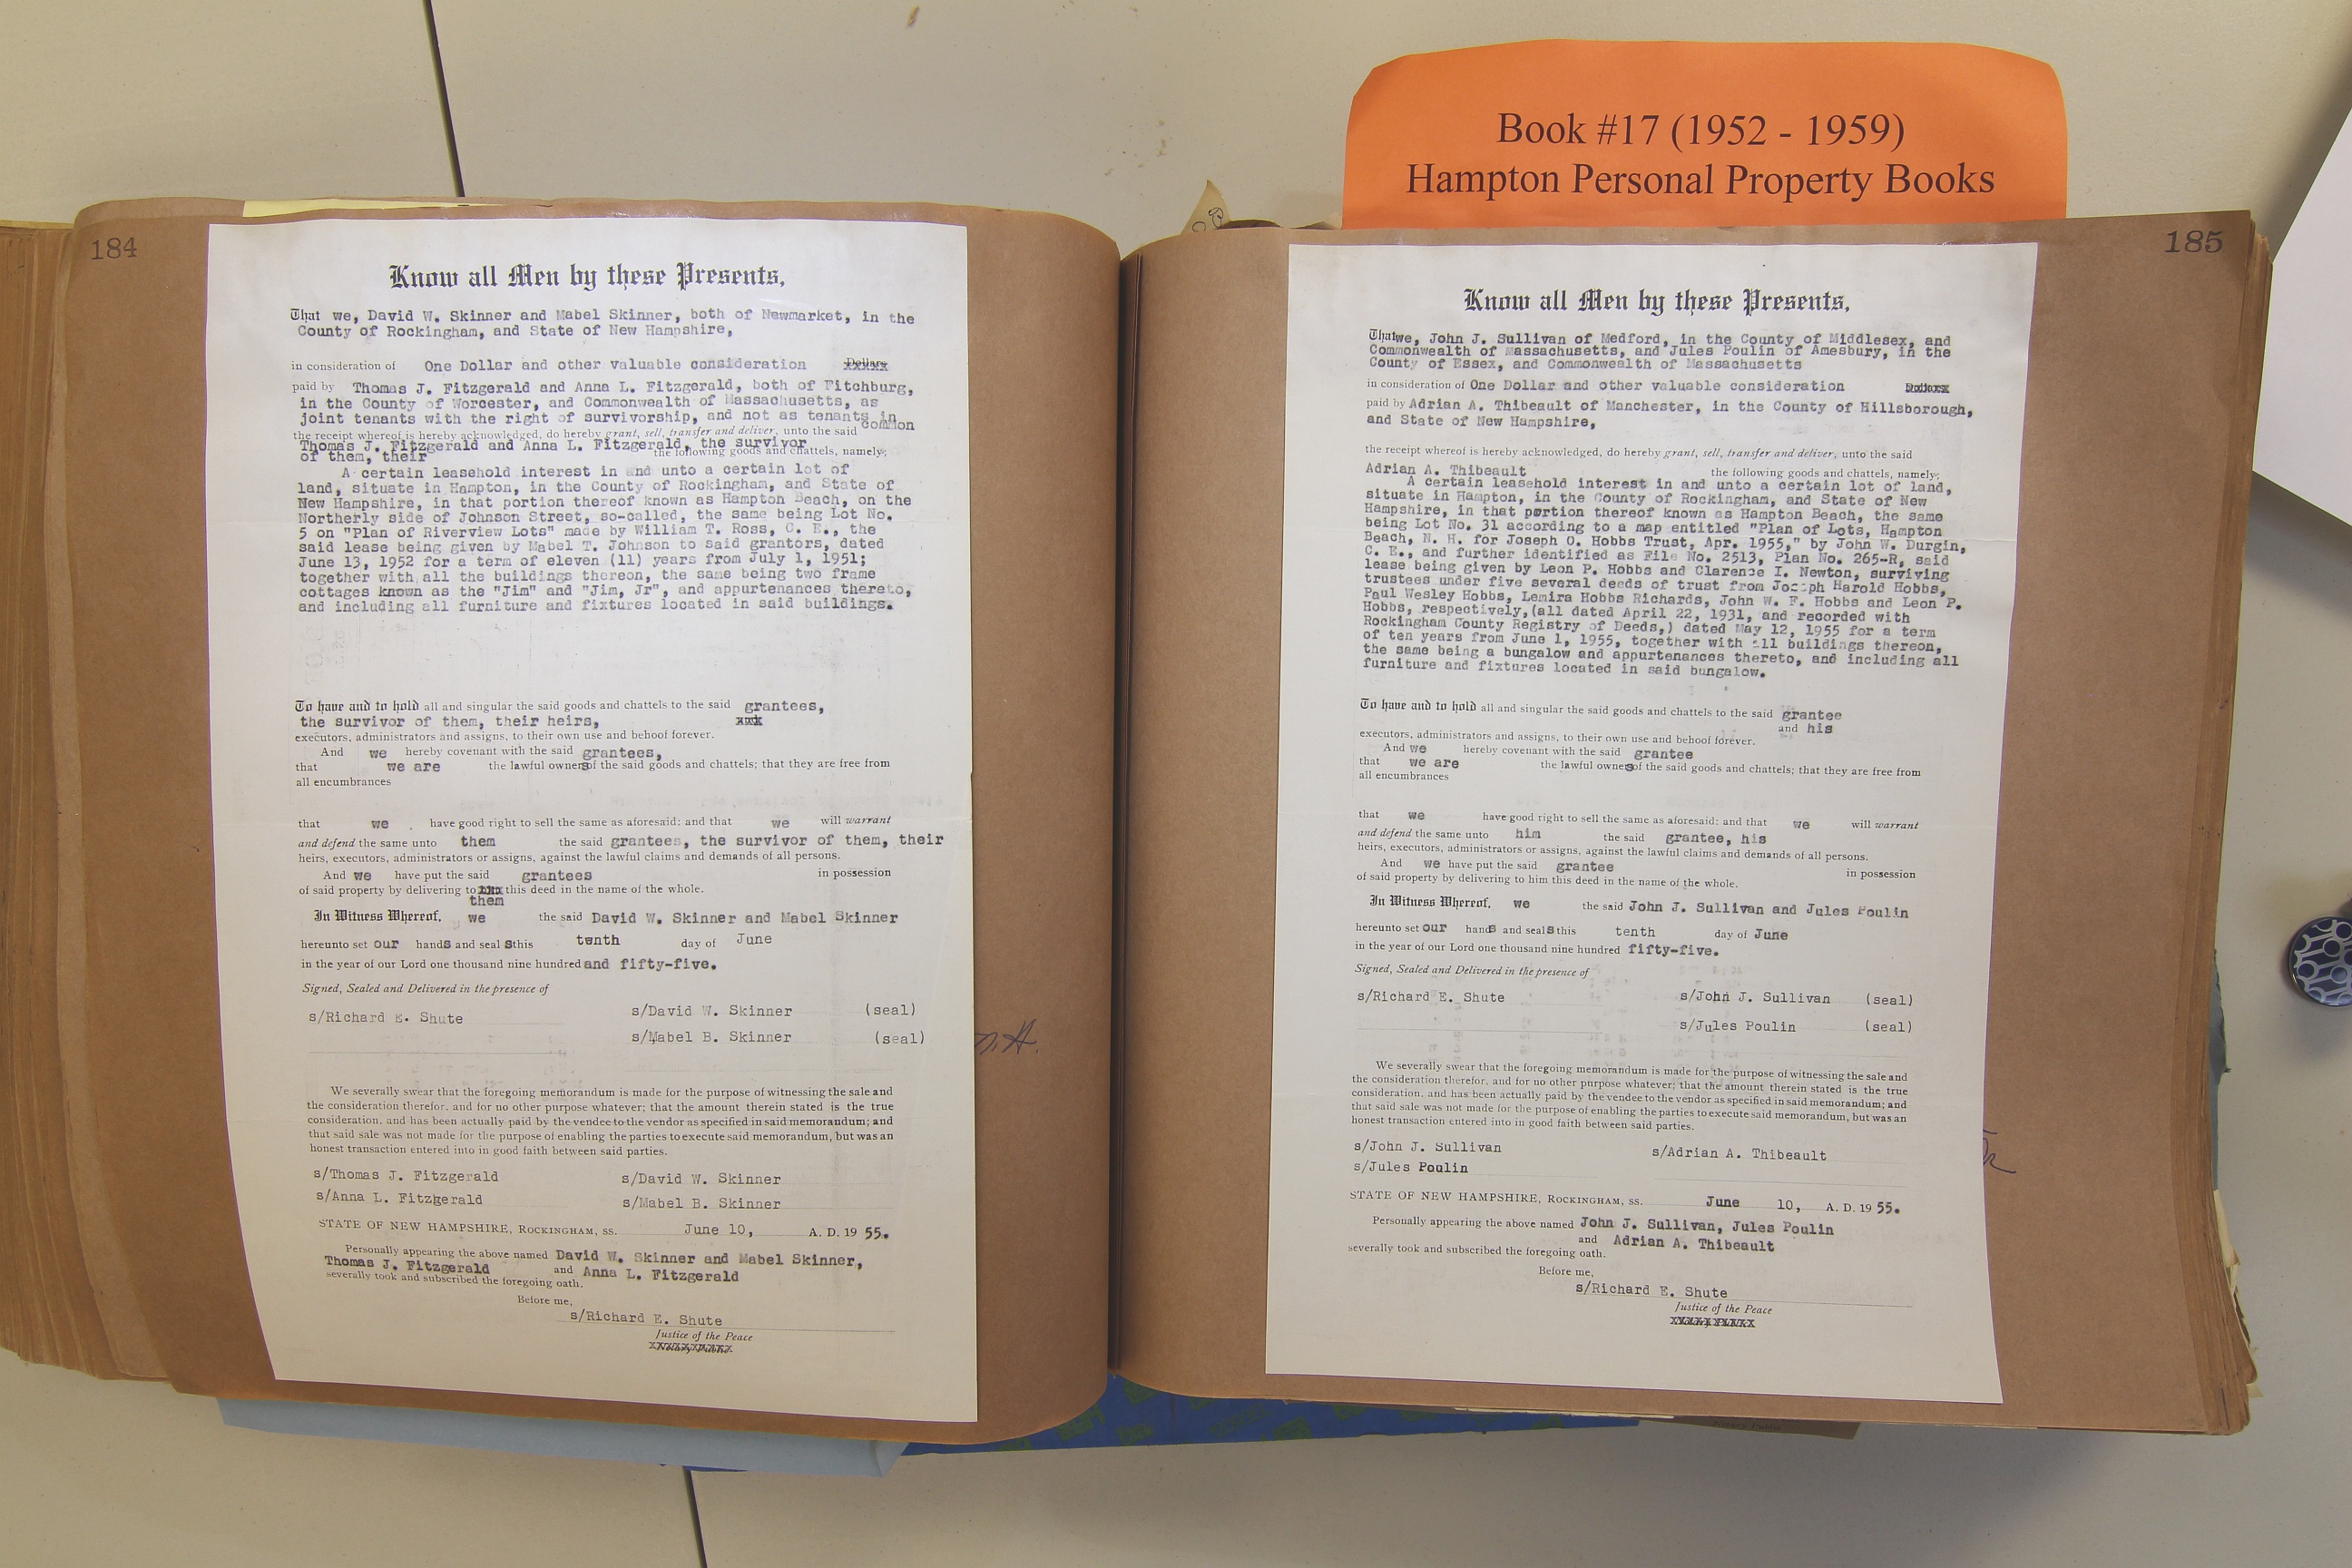 Book #17 (1952 - 1959)
Hampton Personal Property Books
184
Know all Men by these Presents,
That we, David W. Skinner and Mabel Skinner, both of Newmarket, in the
County of Rockingham, and State of New Hampshire,
in consideration of One Dollar and other valuable consideration Dollars
paid by Thomas J. Fitzgerald and Anna L. Fitzgerald, both of Fitchburg,
in the County of Worcester, and Commonwealth of Massachusetts, as
joint tenants with the right of survivorship, and not as tenants in
common
the receipt whereof is hereby acknowledged, do hereby grant, sell, transfer and deliver, unto the said
Thomas J. Fitzgerald and Anna L. Fitzgerald, the survivor
of them, their the following goods and chattels, namely;
A certain leasehold interest in and unto a certain lot of
land, situate in Hampton, in the County of Rockingham, and State of
New Hampshire, in that portion thereof known as Hampton Beach, on the
Northerly side of Johnson Street, so-called, the same being Lot No.
5 on "Plan of Riverview Lots" made by William T. Ross, C. E., the
said lease being given by Mabel T. Johnson to said grantors, dated
June 13, 1952 for a term of eleven (11) years from July 1, 1951;
together with all the buildings thereon, the same being two frame
cottages known as the "Jim" and "Jim, Jr", and appurtenances thereto,
and including all furniture and fixtures located in said buildings.
To have and to hold all and singular the said goods and chattels to the said grantees,
the survivor of them, their heirs, and
executors, administrators and assigns, to their own use and behoof forever.
And we hereby covenant with the said grantees,
that we are the lawful owners of the said goods and chattels; that they are free from
all encumbrances
that we have good right to sell the same as aforesaid; and that we will warrant
and defend the same unto them the said grantees, the survivor of them, their
heirs, executors, administrators or assigns, against the lawful claims and demands of all persons.
And we have put the said grantees in possession
of said property by delivering to him this deed in the name of the whole.
them
In Witness Whereof, we the said David W. Skinner and Mabel Skinner
hereunto set our hands and seal s this tenth day of June
in the year of our Lord one thousand nine hundred and fifty-five.
Signed, Sealed and Delivered in the presence of
s/David W. Skinner (seal)
s/Richard E. Shute
s/Mabel B. Skinner (seal)
We severally swear that the foregoing memorandum is made for the purpose of witnessing the sale and
the consideration therefor, and for no other purpose whatever; that the amount therein stated is the true
consideration, and has been actually paid by the vendee to the vendor as specified in said memorandum; and
that said sale was not made for the purpose of enabling the parties to execute said memorandum, but was an
honest transaction entered into in good faith between said parties.
s/Thomas J. Fitzgerald s/David W. Skinner
s/Anna L. Fitzgerald s/Mabel B. Skinner
STATE OF NEW HAMPSHIRE, ROCKINGHAM, SS. June 10, A. D. 19 55.
Personally appearing the above named David W. Skinner and Mabel Skinner,
Thomas J. Fitzgerald and Anna L. Fitzgerald
severally took and subscribed the foregoing oath.
Before me,
s/Richard E. Shute
Justice of the Peace
Notary Public
185
Know all Men by these Presents,
That we, John J. Sullivan of Medford, in the County of Middlesex, and
Commonwealth of Massachusetts, and Jules Poulin of Amesbury, in the
County of Essex, and Commonwealth of Massachusetts
in consideration of One Dollar and other valuable consideration Dollars
paid by Adrian A. Thibeault of Manchester, in the County of Hillsborough,
and State of New Hampshire,
the receipt whereof is hereby acknowledged, do hereby grant, sell, transfer and deliver, unto the said
Adrian A. Thibeault the following goods and chattels, namely;
A certain leasehold interest in and unto a certain lot of land,
situate in Hampton, in the County of Rockingham, and State of New
Hampshire, in that portion thereof known as Hampton Beach, the same
being Lot No. 31 according to a map entitled "Plan of Lots, Hampton
Beach, N. H. for Joseph O. Hobbs Trust, Apr. 1955," by John W. Durgin,
C. E., and further identified as File No. 2513, Plan No. 265-R, said
lease being given by Leon P. Hobbs and Clarence I. Newton, surviving
trustees under five several deeds of trust from Joseph Harold Hobbs,
Paul Wesley Hobbs, Lemira Hobbs Richards, John W. F. Hobbs and Leon P.
Hobbs, respectively,(all dated April 22, 1931, and recorded with
Rockingham County Registry of Deeds,) dated May 12, 1955 for a term
of ten years from June 1, 1955, together with all buildings thereon,
the same being a bungalow and appurtenances thereto, and including all
furniture and fixtures located in said bungalow.
To have and to hold all and singular the said goods and chattels to the said grantee
and his
executors, administrators and assigns, to their own use and behoof forever.
And we hereby covenant with the said grantee
that we are the lawful owners of the said goods and chattels; that they are free from
all encumbrances
that we have good right to sell the same as aforesaid; and that we will warrant
and defend the same unto him the said grantee, his
heirs, executors, administrators or assigns, against the lawful claims and demands of all persons.
And we have put the said grantee in possession
of said property by delivering to him this deed in the name of the whole.
In Witness Whereof, we the said John J. Sullivan and Jules Poulin
hereunto set our hands and seals this tenth day of June
in the year of our Lord one thousand nine hundred fifty-five.
Signed, Sealed and Delivered in the presence of
s/Richard E. Shute s/John J. Sullivan (seal)
s/Jules Poulin (seal)
We severally swear that the foregoing memorandum is made for the purpose of witnessing the sale and
the consideration therefor, and for no other purpose whatever; that the amount therein stated is the true
consideration, and has been actually paid by the vendee to the vendor as specified in said memorandum; and
that said sale was not made for the purpose of enabling the parties to execute said memorandum, but was an
honest transaction entered into in good faith between said parties.
s/John J. Sullivan s/Adrian A. Thibeault
s/Jules Poulin
STATE OF NEW HAMPSHIRE, ROCKINGHAM, SS. June 10, A. D. 19 55.
Personally appearing the above named John J. Sullivan, Jules Poulin
and Adrian A. Thibeault
severally took and subscribed the foregoing oath.
Before me,
s/Richard E. Shute
Justice of the Peace
Notary Public